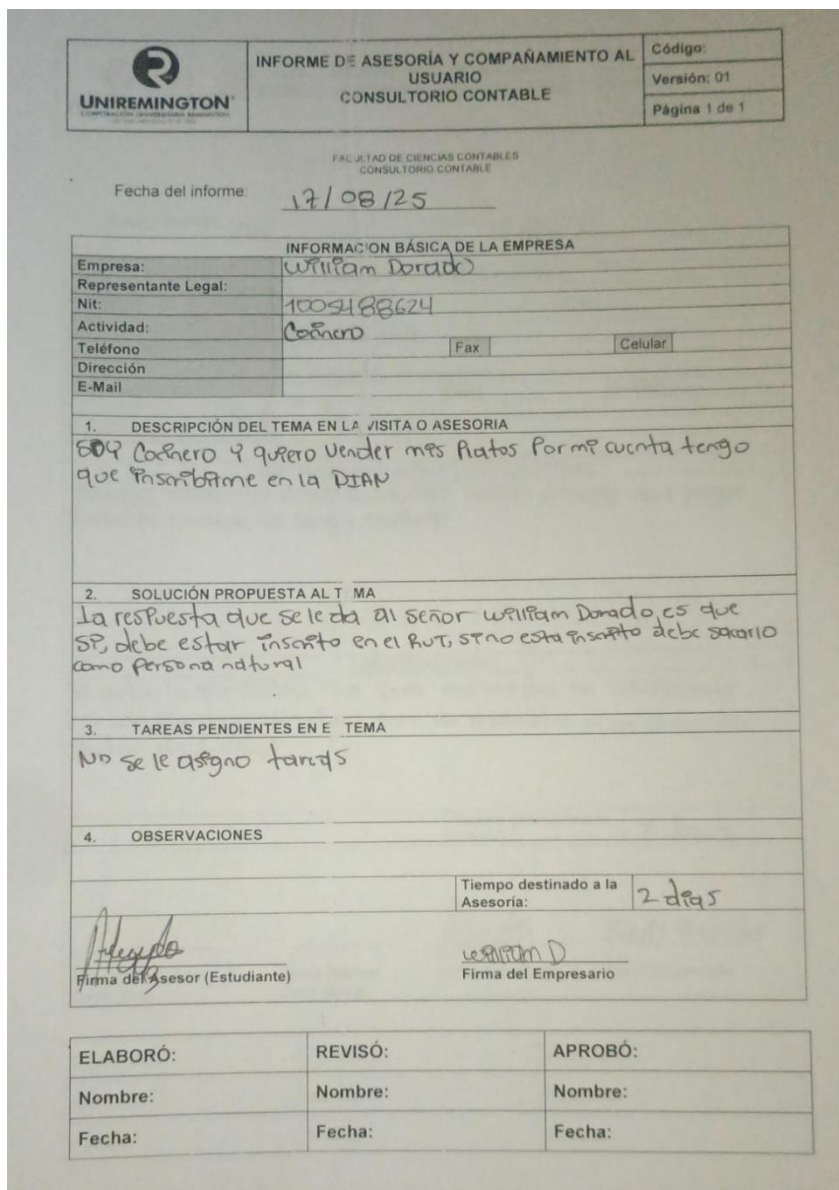 UNIREMINGTON
CORPORACIÓN UNIVERSITARIA REMINGTON
INFORME DE ASESORÍA Y COMPAÑAMIENTO AL
USUARIO
CONSULTORIO CONTABLE
Código:
Versión: 01
Página 1 de 1
FACULTAD DE CIENCIAS CONTABLES
CONSULTORIO CONTABLE
Fecha del informe: 17/08/25
INFORMACION BÁSICA DE LA EMPRESA
Empresa: William Dorado
Representante Legal:
Nit: 1005488624
Actividad: Cocinero
Teléfono Fax Celular
Dirección
E-Mail
1. DESCRIPCIÓN DEL TEMA EN LA VISITA O ASESORIA
SOY Cocinero y quiero vender mis Platos Por mi cuenta tengo
que inscribirme en la DIAN
2. SOLUCIÓN PROPUESTA AL T MA
La respuesta que se le da al señor William Dorado, es que
si, debe estar inscrito en el RUT, si no esta inscrito debe sacarlo
como persona natural
3. TAREAS PENDIENTES EN E TEMA
No se le asigno tareas
4. OBSERVACIONES
Tiempo destinado a la
Asesoría: 2 dias
William D
Firma del Asesor (Estudiante) Firma del Empresario
ELABORÓ: REVISÓ: APROBÓ:
Nombre: Nombre: Nombre:
Fecha: Fecha: Fecha: